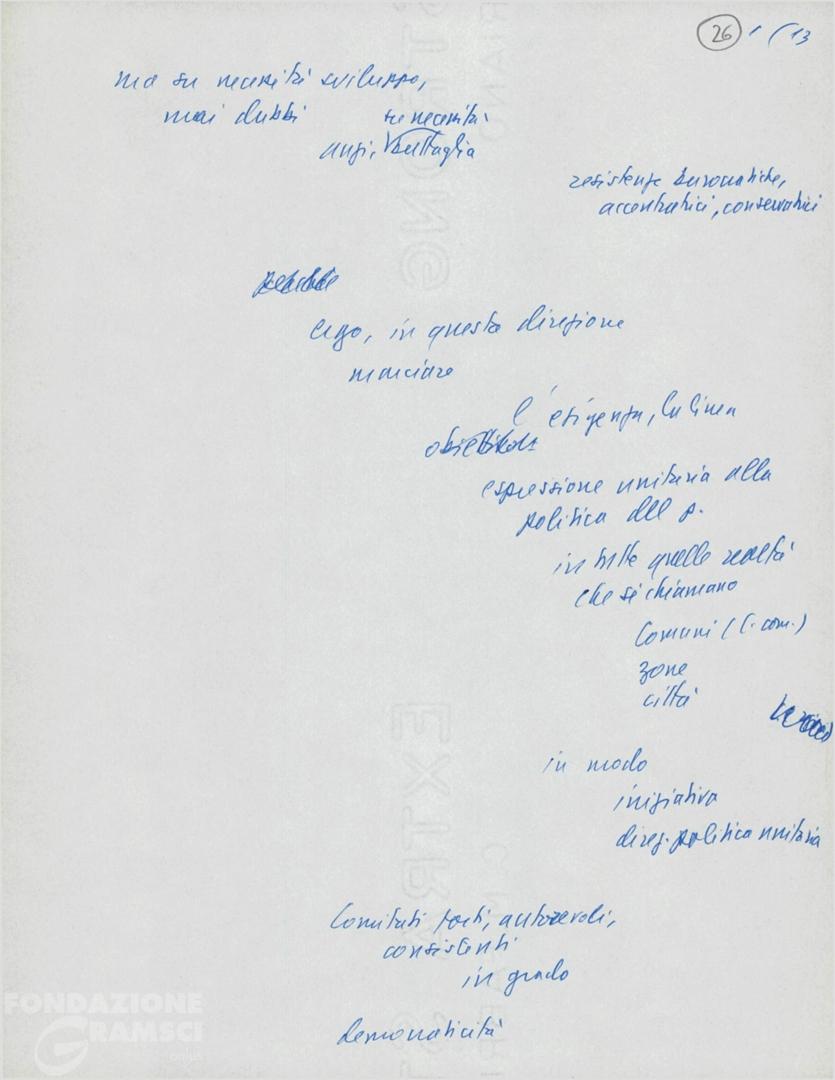 26 1 ( 13
ma su necessità sviluppo,
mai dubbi su necessità
anzi, battaglia
resistenze burocratiche,
accentratrici, conservatrici
ergo, in questa direzione
marciare
l'esigenza, la linea
espressione unitaria alla
politica del p.
in tutte quelle realtà
che si chiamano
Comuni (C. com.)
zone
città
in modo
iniziativa
direz. politica unitaria
Comitati forti, autorevoli,
consistenti
in grado
democraticità
FONDAZIONE
GRAMSCI
onlus